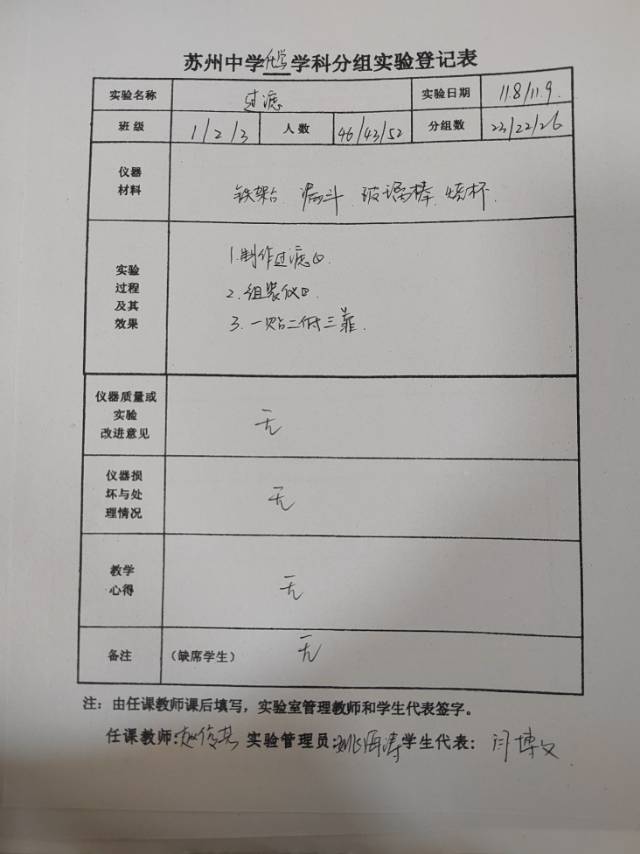 苏州中学化学学科分组实验登记表
实验名称 过滤 实验日期 11.8/11.9.
班级 1/2/3 人数 46/43/52 分组数 23/22/26
仪器
材料
铁架台 漏斗 玻璃棒 烧杯.
实验
过程
及其
效果
1.制作过滤口.
2.组装仪口.
3.一贴二低三靠.
仪器质量或
实验
改进意见
无
仪器损
坏与处
理情况
无
教学
心得
无
备注 (缺席学生) 无
注：由任课教师课后填写，实验室管理教师和学生代表签字。
任课教师: 实验管理员: 学生代表: 闫博文